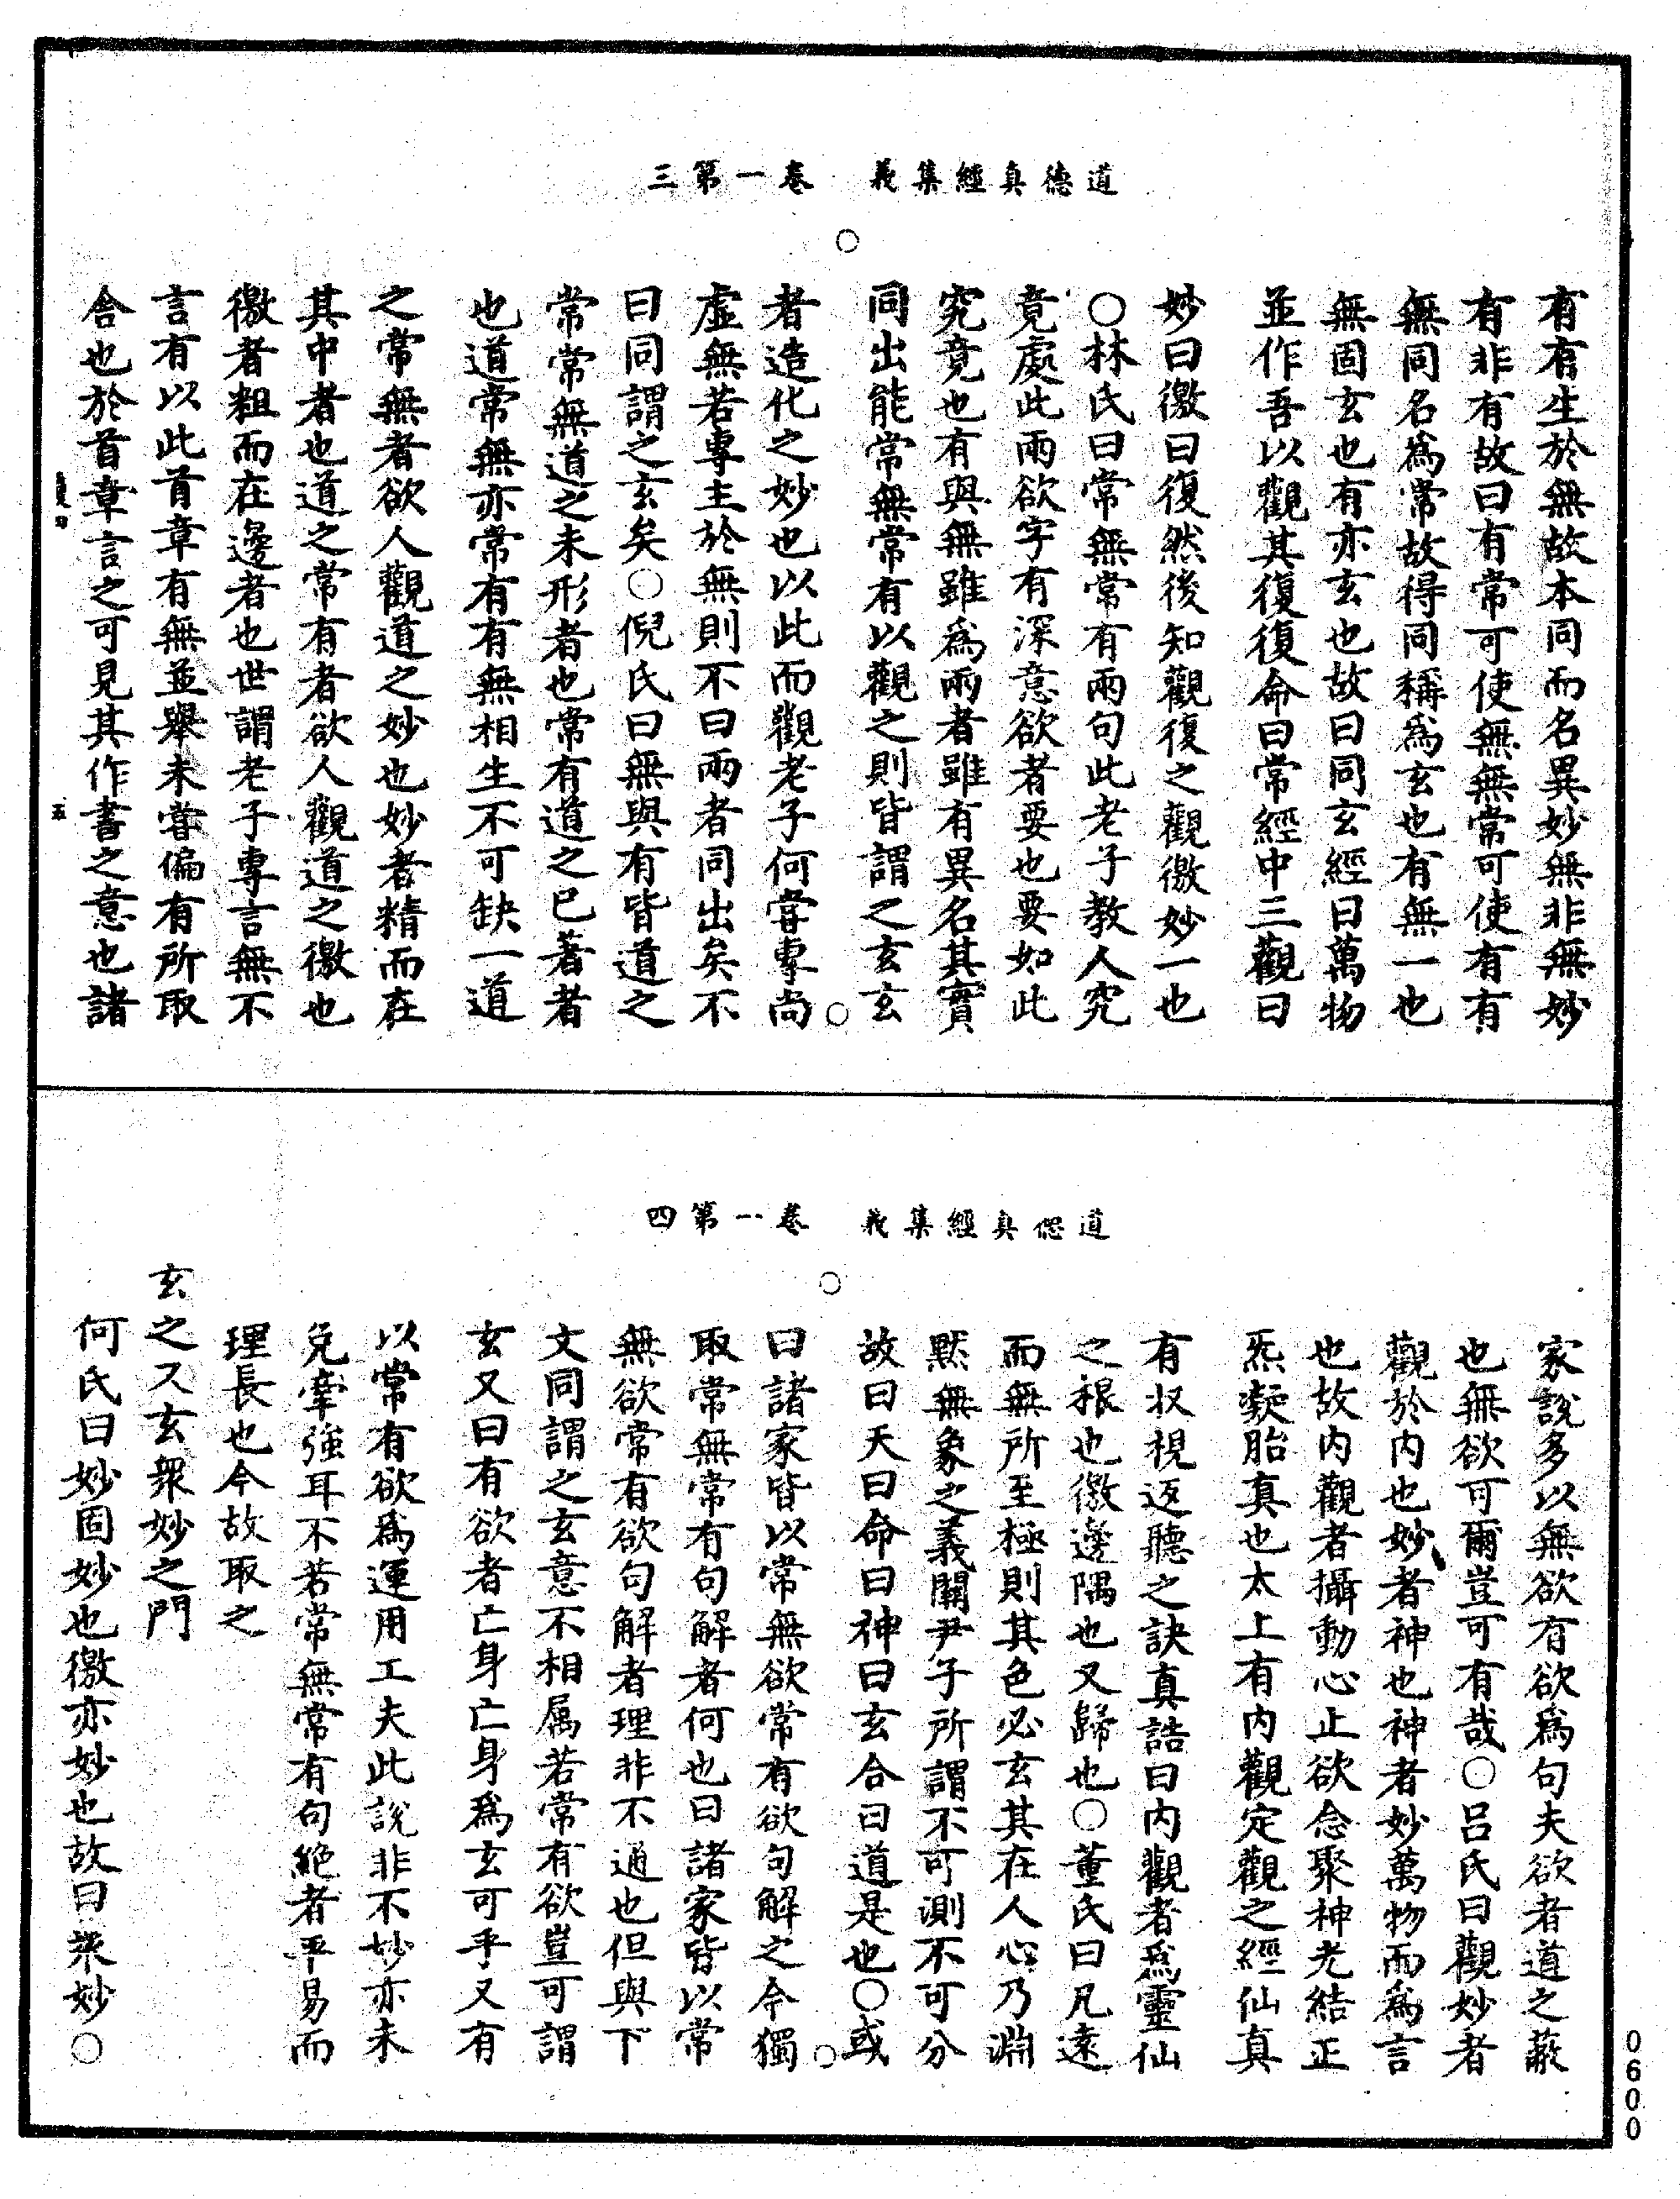 道德真經集義　卷一第三
有有生於無故本同而名異妙無非無妙
有非有故曰有常可使無無常可使有有
無同名爲常故得同稱爲玄也有無一也
無固玄也有亦玄也故曰同玄經曰萬物
並作吾以觀其復復命曰常經中三觀曰
妙曰徼曰復然後知觀復之觀徼妙一也
○林氏曰常無常有兩句此老子教人究
竟處此兩欲字有深意欲者要也要如此
究竟也有與無雖爲兩者雖有異名其實
同出能常無常有以觀之則皆謂之玄玄
者造化之妙也以此而觀老子何甞專尚
虛無若專主於無則不曰兩者同出矣不
曰同謂之玄矣○倪氏曰無與有皆道之
常常無道之未形者也常有道之已著者
也道常無亦常有有無相生不可缺一道
之常無者欲人觀道之妙也妙者精而在
其中者也道之常有者欲人觀道之徼也
徼者粗而在邊者也世謂老子專言無不
言有以此首章有無並舉未甞偏有所取
舍也於首章言之可見其作書之意也諸
五
道德真經集義　卷一第四
家說多以無欲有欲爲句夫欲者道之蔽
也無欲可爾豈可有哉○吕氏曰觀妙者
觀於内也妙者神也神者妙萬物而爲言
也故内觀者攝動心止欲念聚神光結正
炁凝胎真也太上有内觀定觀之經仙真
有収視返聽之訣真誥曰内觀者爲靈仙
之根也徼邊隅也又歸也○董氏曰凡遠
而無所至極則其色必玄其在人心乃淵
默無象之義關尹子所謂不可測不可分
故曰天曰命曰神曰玄合曰道是也○或
曰諸家皆以常無欲常有欲句解之今獨
取常無常有句解者何也曰諸家皆以常
無欲常有欲句解者理非不通也但與下
文同謂之玄意不相属若常有欲豈可謂
玄又曰有欲者亡身亡身爲玄可乎又有
以常有欲爲運用工夫此說非不妙亦未
免牽強耳不若常無常有句絶者平易而
理長也今故取之
玄之又玄衆妙之門
何氏曰妙固妙也徼亦妙也故曰衆妙○
0600